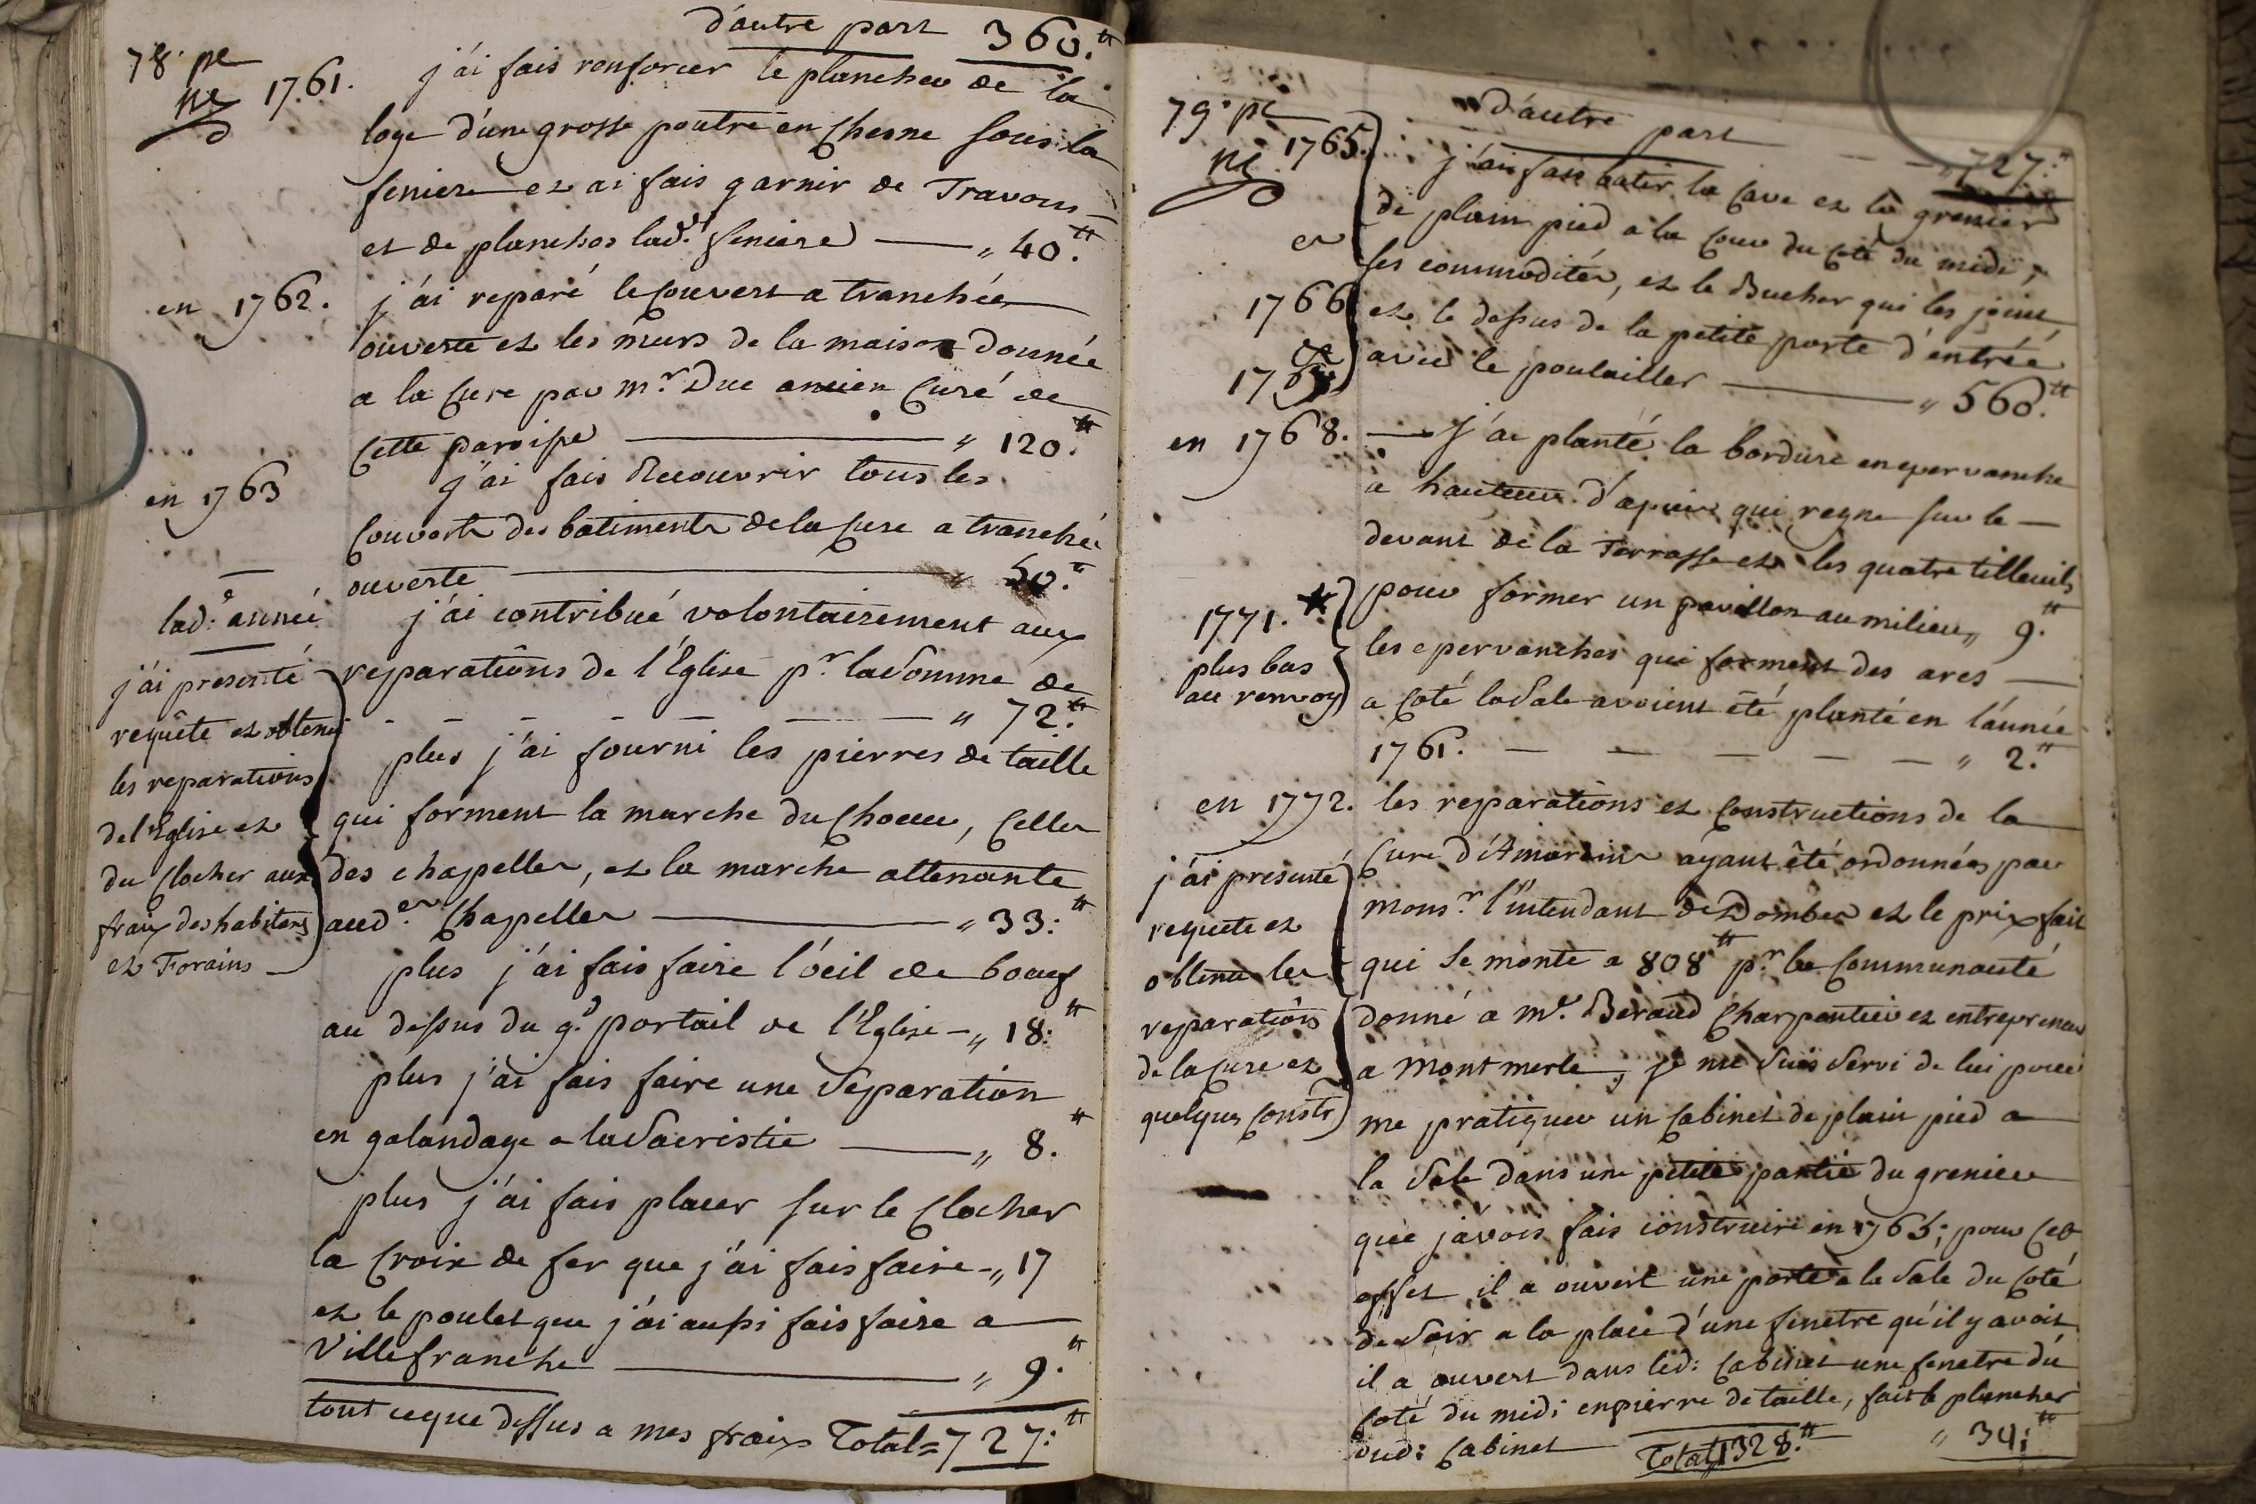 d'autre part 360.ᵗᵗ
78.ᵉ pᵉ
1761. j'ai fais renforcer le plancher de la
loge d'une grosse poutre en chesne sous la
feniere et ai fais garnir de Travons
et de planches lad.ᵉ feniere — „ 40.ᵗᵗ
en 1762. j'ai reparé le couvert a tranchée
ouverte et les murs de la maison donnée
a la cure par m.ʳ Duc ancien curé de
cette paroisse — „ 120.ᵗᵗ
en 1763 j'ai fais Recouvrir tous les
couverts des batiments de la cure a tranchée
ouverte — „ 50.ᵗᵗ
lad.ᵉ année j'ai contribué volontairement aux
reparations de l'Eglise p.ʳ la somme de
— „ 72.ᵗᵗ
plus j'ai fourni les pierres de taille
qui forment la marche du choeur, celles
des chapelles, et la marche attenante
aud.ᵉˢ chapelles — „ 33.ᵗᵗ
plus j'ai fais faire l'oeil de boeuf
au dessus du g.ᵈ portail de l'Eglise — „ 18.ᵗᵗ
plus j'ai fais faire une separation
en galandage a la sacristie — „ 8.ᵗᵗ
plus j'ai fais placer sur le clocher
la croix de fer que j'ai fais faire — „ 17
et le poulet que j'ai aussi fais faire a
Villefranche — „ 9.ᵗᵗ
tout ce que dessus a mes fraix Total = 727.ᵗᵗ
j'ai presenté
requête et obtenu
les reparations
de l'Eglise et
du clocher aux
fraix des habitans
et Forains —
79.ᵉ pᵉ
d'autre part — 727.ᵗᵗ
1765. j'ai fais batir la cave et le grenier
de plain pied a la cour du coté du midi,
et
les commodités, et le Bucher qui les joint,
1766 et le dessus de la petite porte d'entrée
et
avec le poulailler — „ 560.ᵗᵗ
1767
en 1768. — j'ai planté la bordure en epervanche
a hauteur d'apui qui regne sur le —
devant de la Terrasse et les quatre tilleuils
pour former un pavillon au milieu „ 9.ᵗᵗ
1771. *
plus bas
au renvoy
les epervanches qui forment des arcs —
a coté la sale avoient été planté en l'année
1761. — „ 2.ᵗᵗ
en 1772. les reparations et constructions de la
cure d'Amareins ayant été ordonnées par
mons.ʳ l'intendant de Dombes et le prix fait
qui se monte a 808ᵗᵗ p.ʳ la communauté
donné a m.ᵉ Beraud charpentier et entrepreneur
a montmerle, je me suis servi de lui pour
me pratiquer un cabinet de plain pied a
la sale dans une petite partie du grenier
que j'avois fais construire en 1765; pour cet
effet il a ouvert une porte a la sale du coté
de soir a la place d'une fenetre qu'il y avoit
il a ouvert dans led: cabinet une fenetre du
coté du midi en pierre de taille, fait le plancher
dud: cabinet — „ 30.ᵗᵗ
Total 1328.ᵗᵗ
j'ai presenté
requete et
obtenu les
reparations
de la cure et
quelques constr.